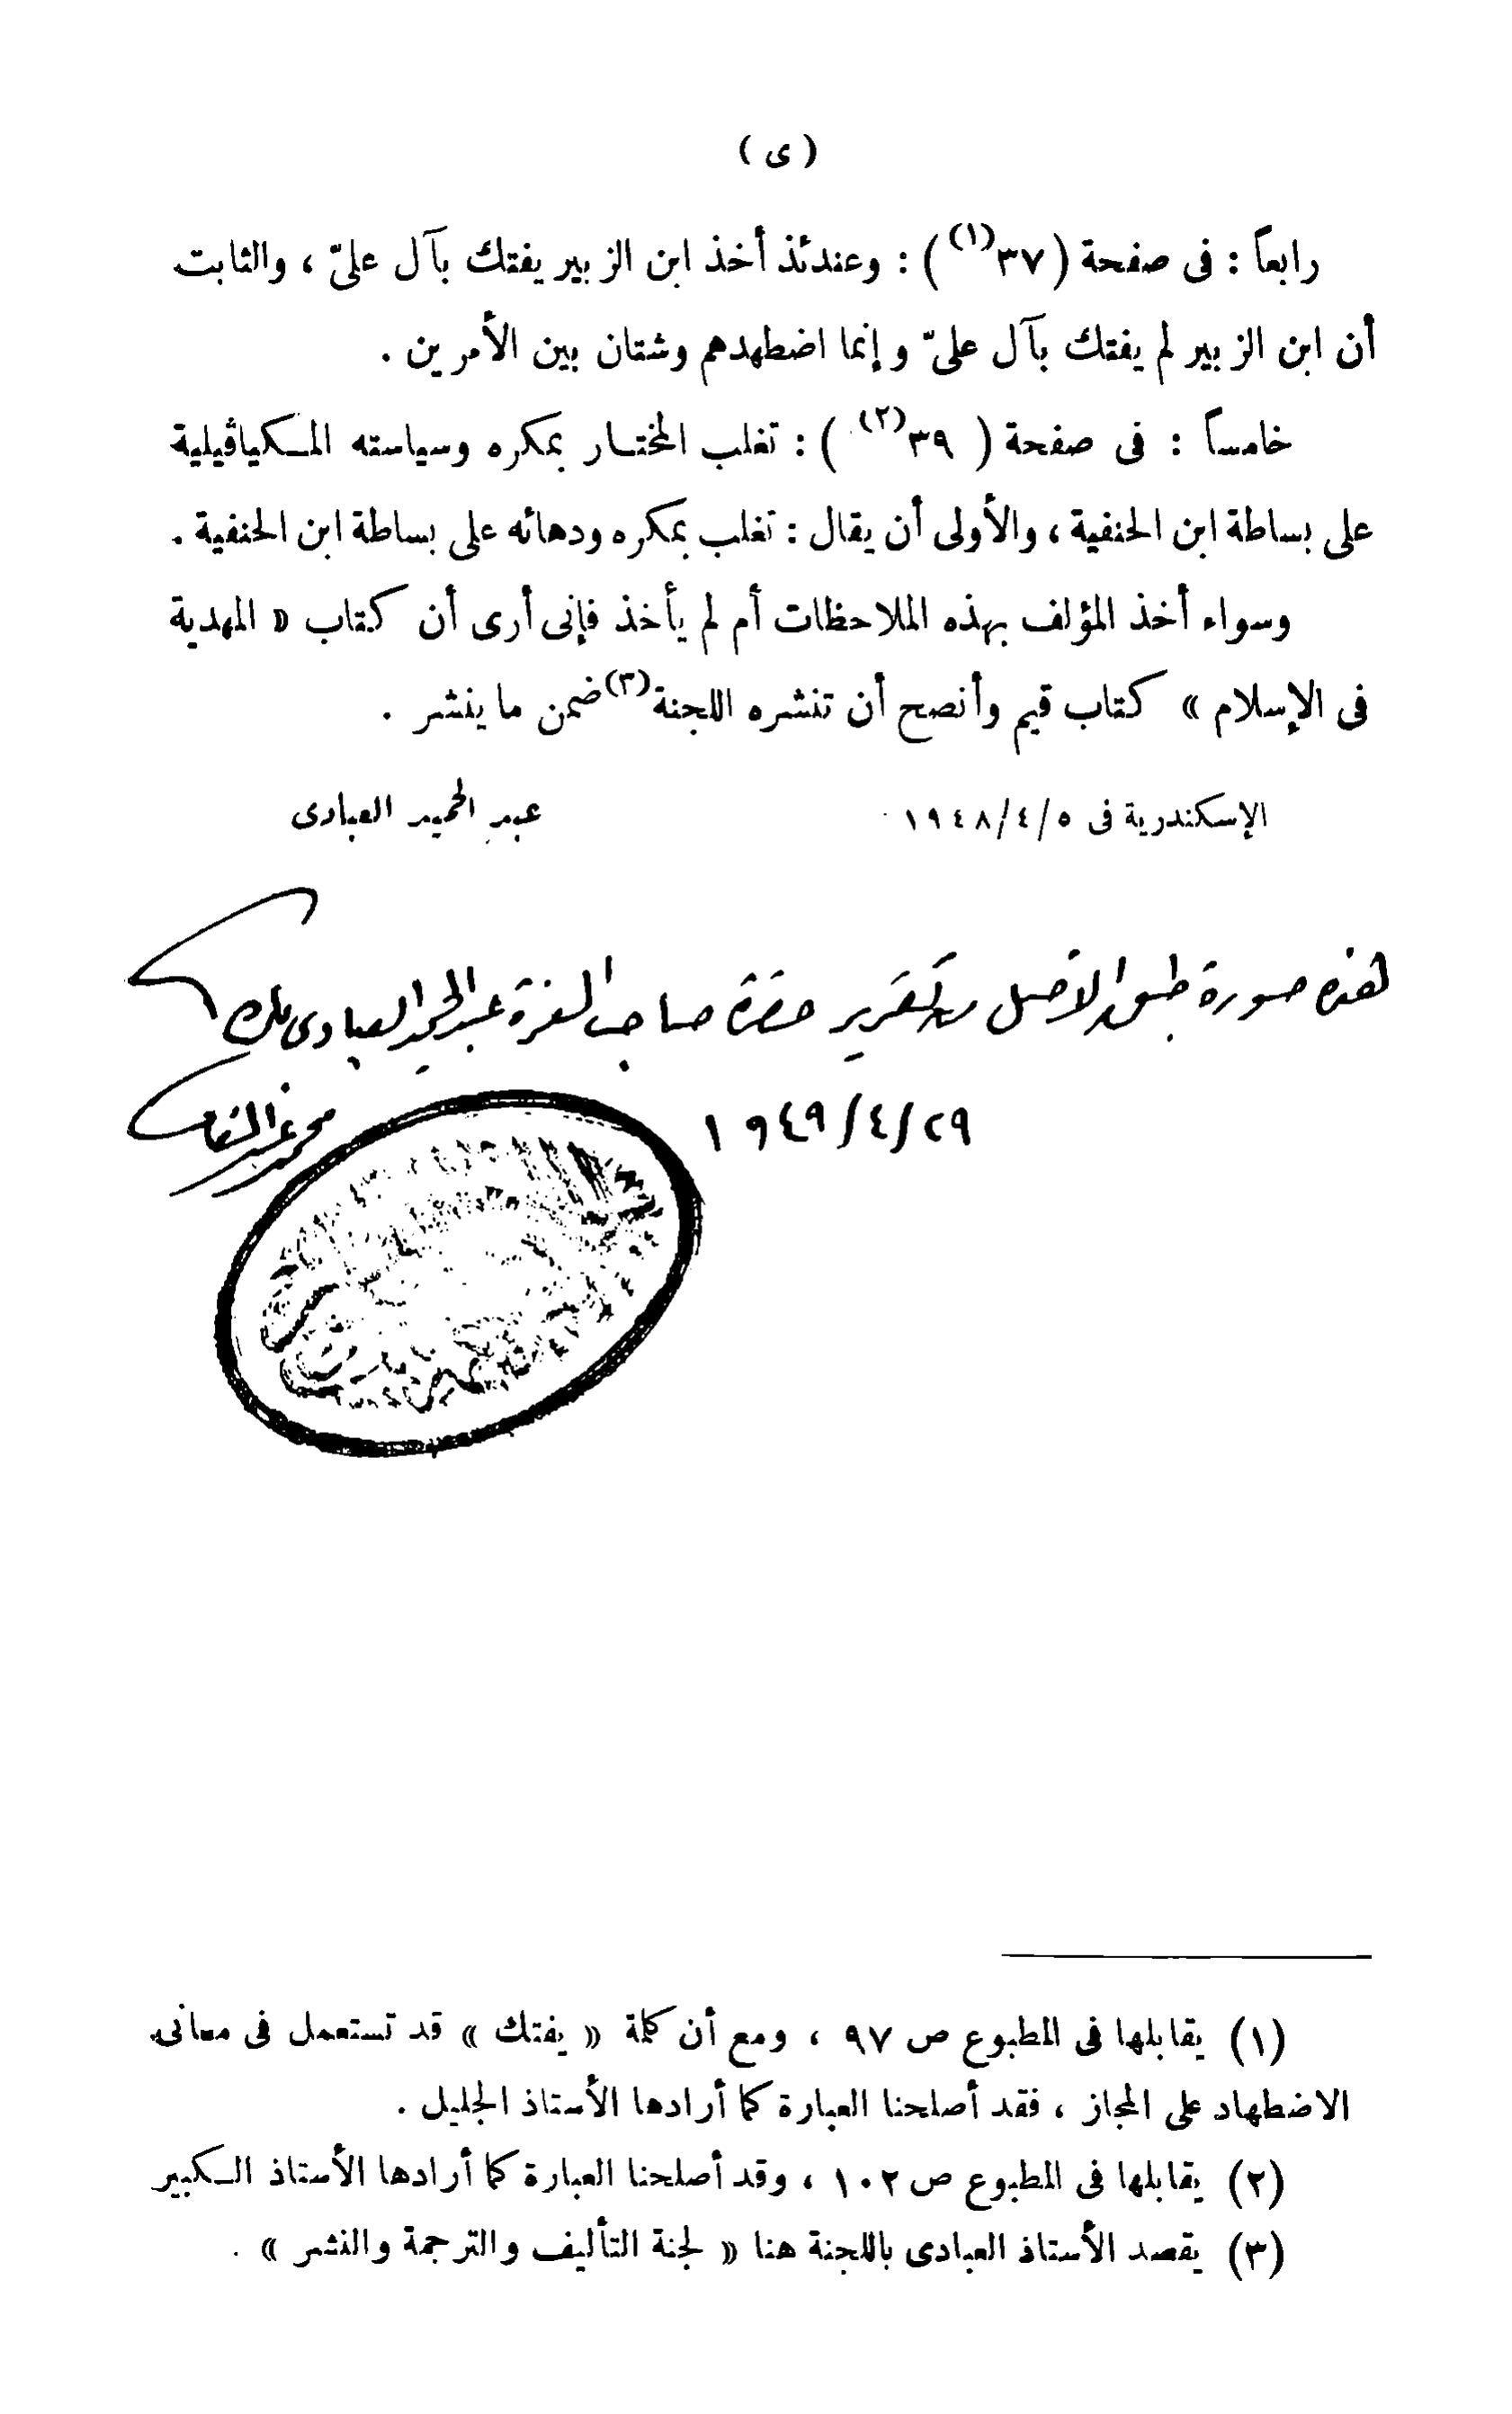 ( ى )
رابعاً : فى صفحة (٣٧(١) ) : وعندئذ أخذ ابن الزبير يفتك بآل علىّ ، والثابت
أن ابن الزبير لم يفتك بآل علىّ وإنما اضطهدهم وشتان بين الأمرين .
خامساً : فى صفحة ( ٣٩(٢) ) : تغلب المختـار بمكره وسياسته المـكياڤيلية
على بساطة ابن الحنفية ، والأولى أن يقال : تغلب بمكره ودهائه على بساطة ابن الحنفية .
وسواء أخذ المؤلف بهذه الملاحظات أم لم يأخذ فإنى أرى أن كتاب « المهدية
فى الإسلام » كتاب قيم وأنصح أن تنشره اللجنة(٣) ضمن ما ينشر .
الإسكندرية فى ٥/٤/١٩٤٨ عبد الحميد العبادى
هذه صورة طبق الأصل من تقرير حضرة صاحب العزة عبد الحميد العبادى بك
٢٩/٤/١٩٤٩
(١) يقابلها فى المطبوع ص ٩٧ ، ومع أن كلمة « يفتك » قد تستعمل فى معانى
الاضطهاد على المجاز ، فقد أصلحنا العبارة كما أرادها الأستاذ الجليل .
(٢) يقابلها فى المطبوع ص ١٠٢ ، وقد أصلحنا العبارة كما أرادها الأستاذ الـكبير
(٣) يقصد الأستاذ العبادى باللجنة هنا « لجنة التأليف والترجمة والنشر » .